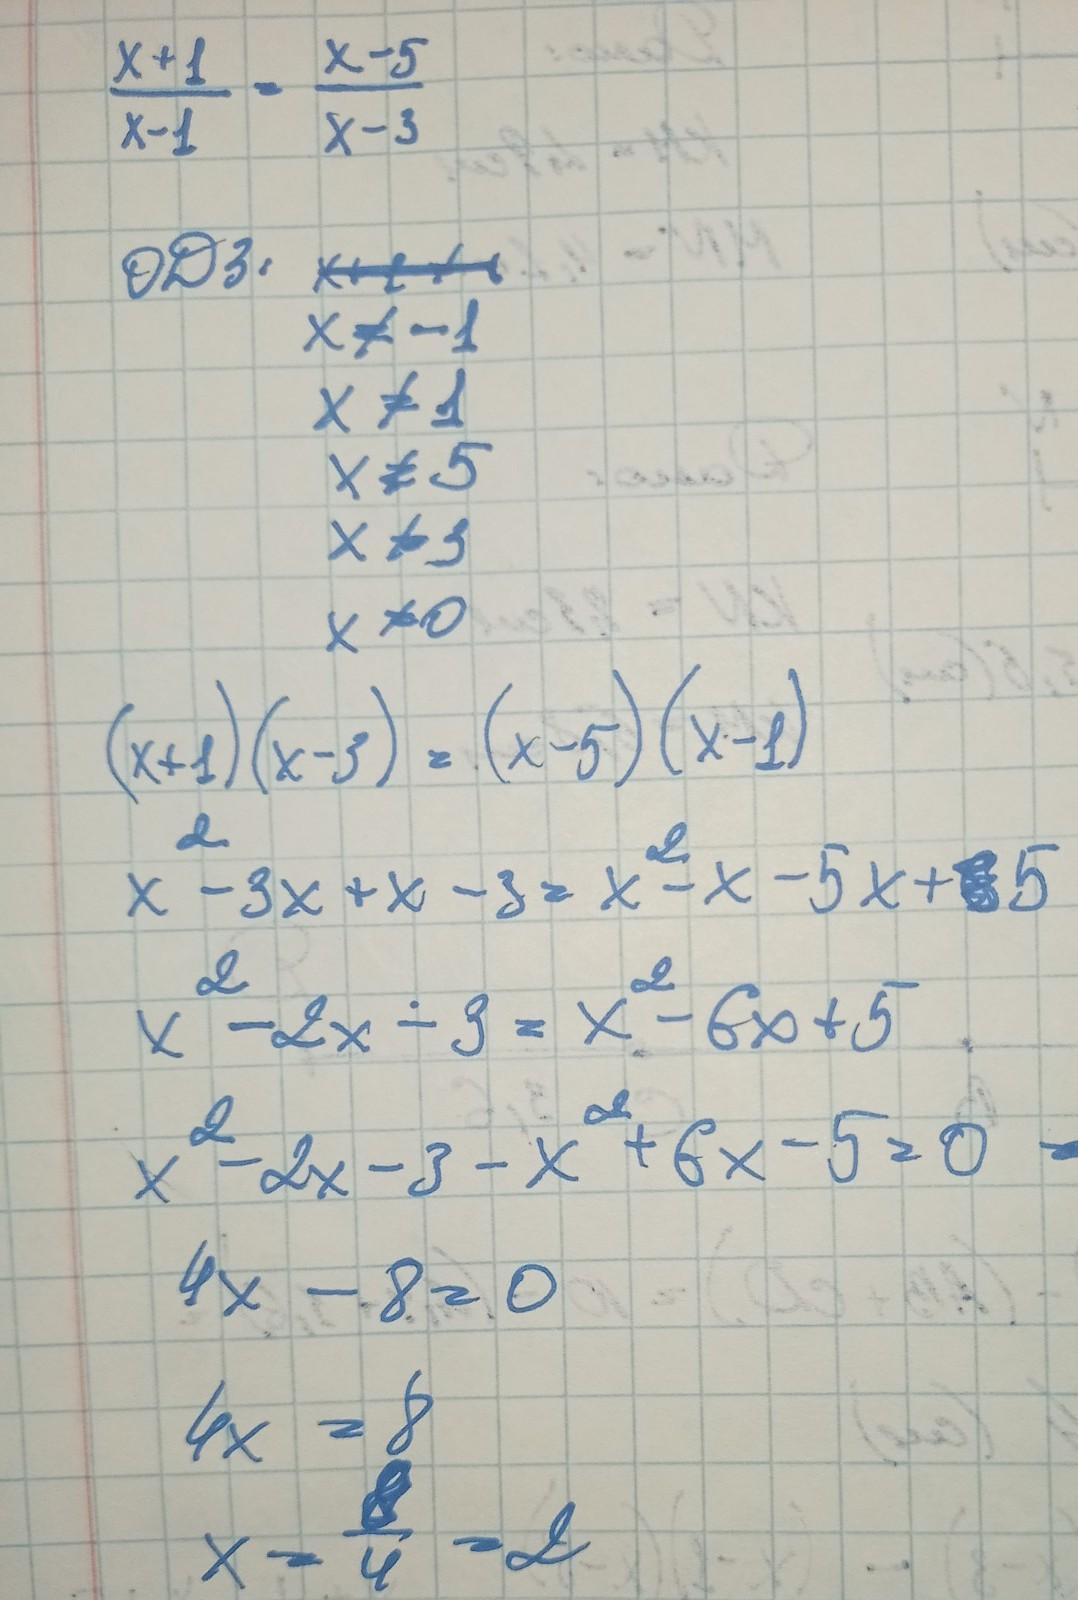 x+1/x-1 = x-5/x-3
ОДЗ:
x ≠ -1
x ≠ 1
x ≠ 5
x ≠ 3
x ≠ 0
(x+1)(x-3) = (x-5)(x-1)
x² - 3x + x - 3 = x² - x - 5x + 5
x² - 2x - 3 = x² - 6x + 5
x² - 2x - 3 - x² + 6x - 5 = 0 -
4x - 8 = 0
4x = 8
x = 8/4 = 2